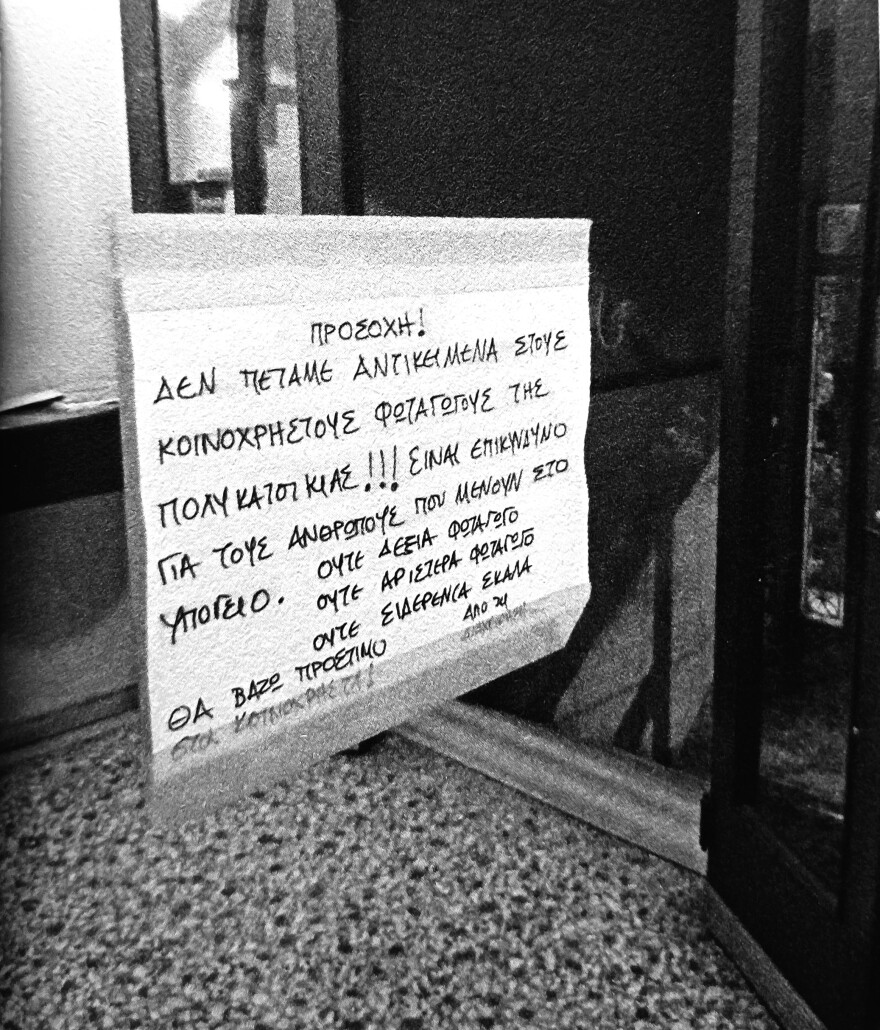 ΠΡΟΣΟΧΗ!
ΔΕΝ ΠΕΤΑΜΕ ΑΝΤΙΚΕΙΜΕΝΑ ΣΤΟΥΣ
ΚΟΙΝΟΧΡΗΣΤΟΥΣ ΦΩΤΑΓΩΓΟΥΣ ΤΗΣ
ΠΟΛΥΚΑΤΟΙΚΙΑΣ!!! ΕΙΝΑΙ ΕΠΙΚΥΝΔΥΝΟ
ΓΙΑ ΤΟΥΣ ΑΝΘΡΩΠΟΥΣ ΠΟΥ ΜΕΝΟΥΝ ΣΤΟ
ΥΠΟΓΕΙΟ. ΟΥΤΕ ΔΕΞΙΑ ΦΩΤΑΓΩΓΟ
ΟΥΤΕ ΑΡΙΣΤΕΡΑ ΦΩΤΑΓΩΓΟ
ΟΥΤΕ ΣΙΔΕΡΕΝΙΑ ΣΚΑΛΑ
ΘΑ ΒΑΖΩ ΠΡΟΣΤΙΜΟ ΑΠΟ ΤΗ
ΣΤΑ ΚΟΙΝΟΧΡΗΣΤΑ!